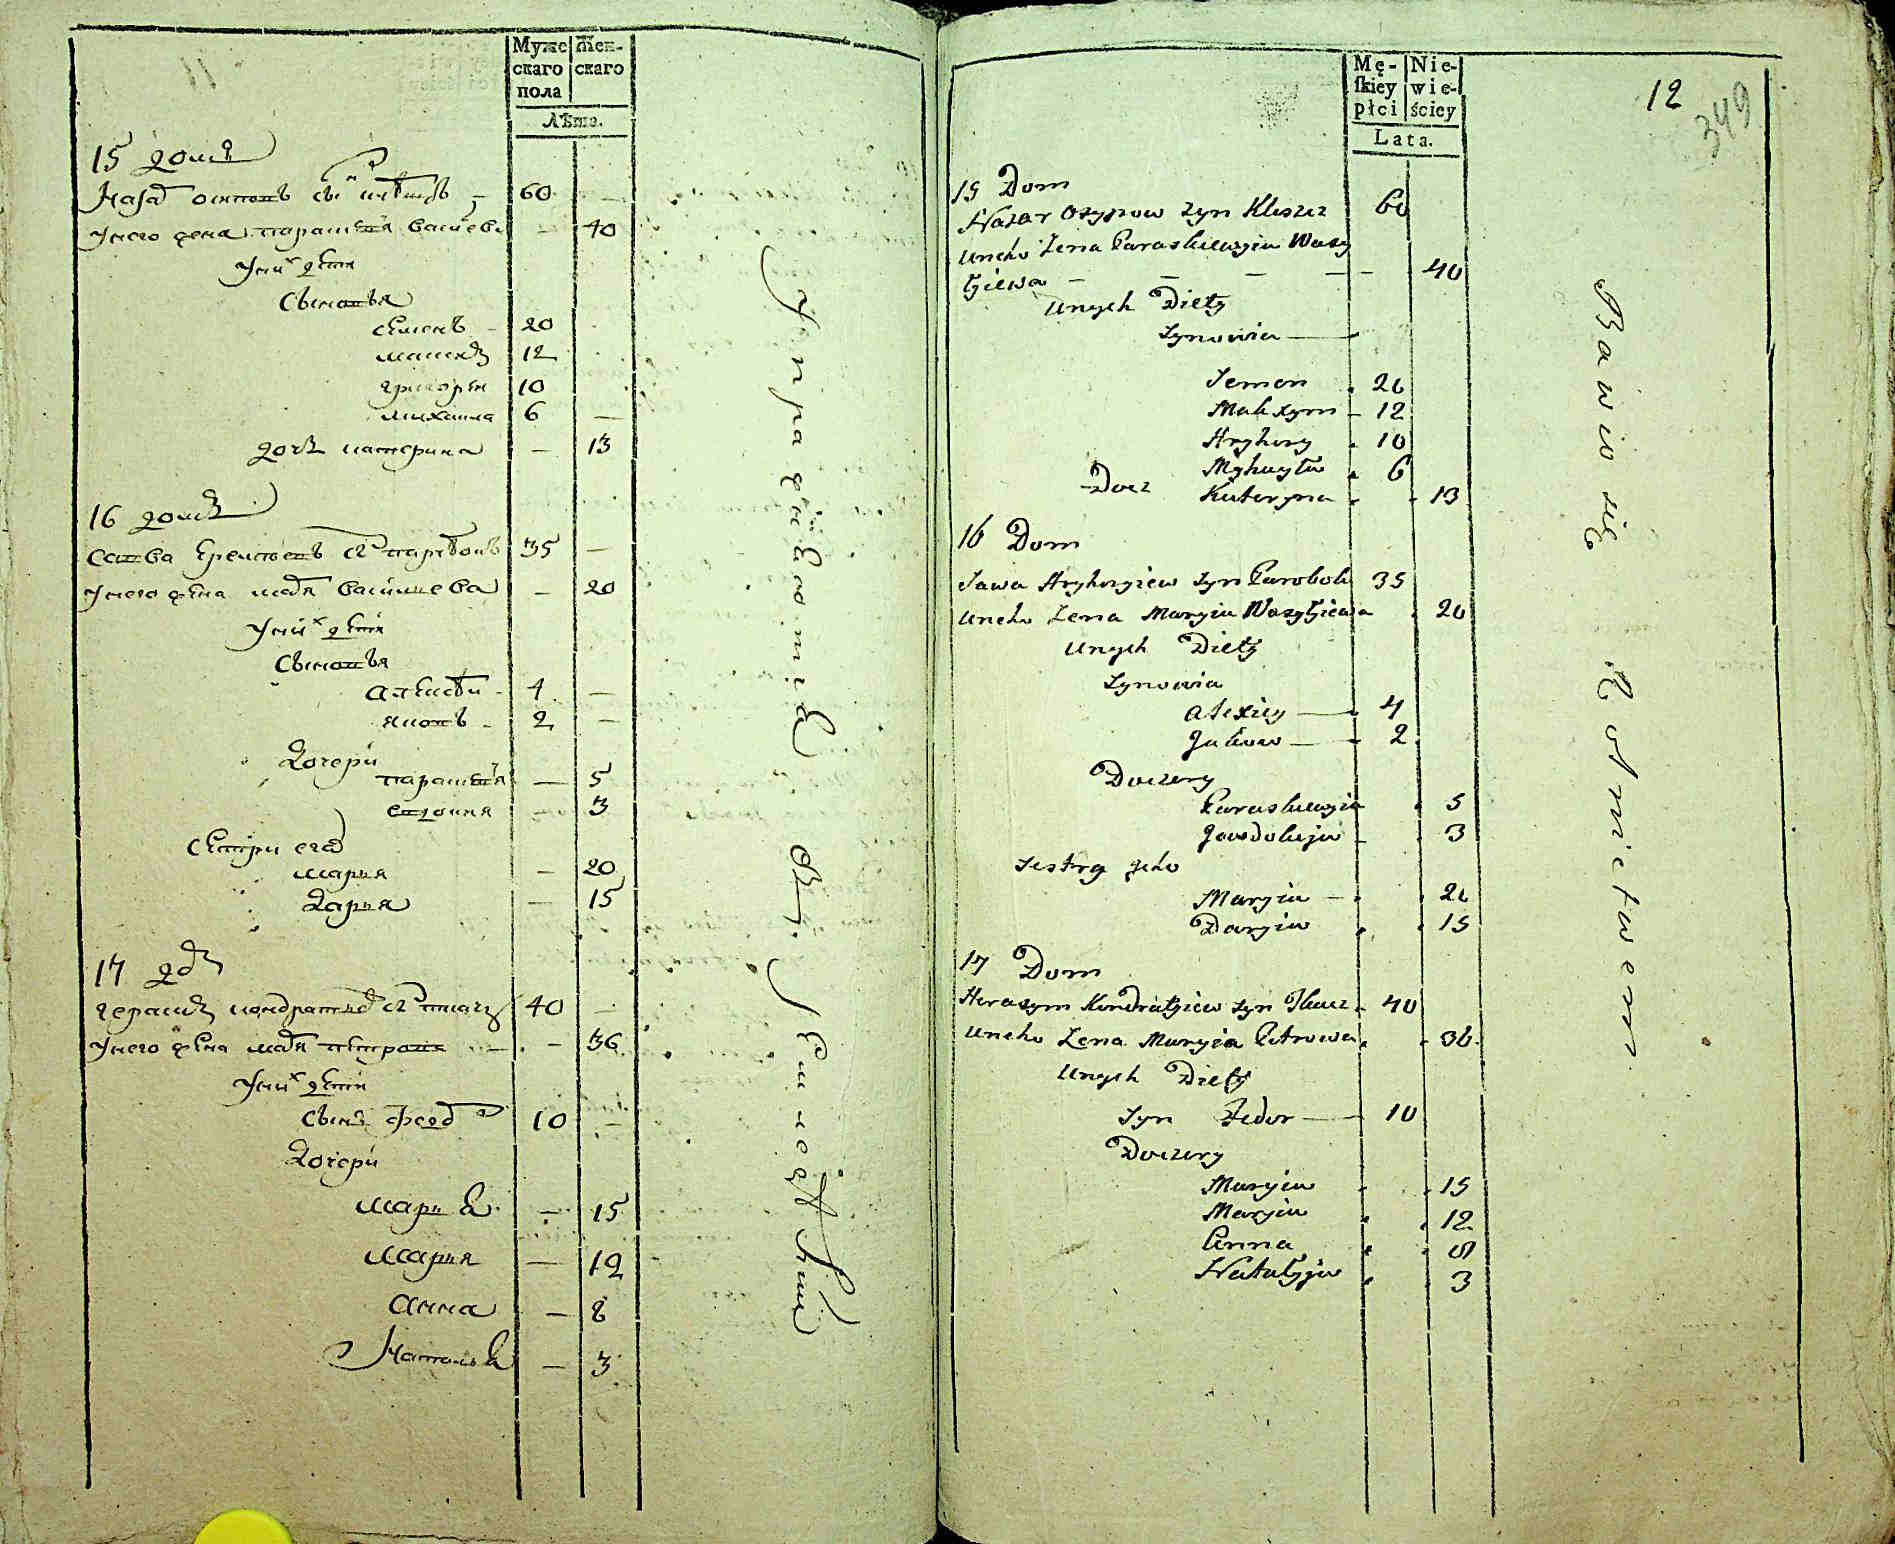 Муже
скаго
пола
Жен-
скаго
Лѣта.
15 домъ
Назаръ осиповъ сынъ
У него жена парасковя василева
У них дети
Сыновья
Семенъ - 20
максимъ 12
григорeи 10
михаила 6 -
дочь катерина - 13
16 домъ
Савва сынъ 35 -
У него жена марья василиева - 20
У них дети
Сыновья
алексеи - 4 -
яковъ - 2 -
Дочери
парасковя - 5
евдокия - 3
Сестри его
марья - 20
Дарья - 15
17 домъ
герасимъ кондратьевъ сынъ ткачъ 40 -
У него жена марья петрова - 36
У них дети
Сынъ Федор 10 -
Дочери
марья - 15
марья - 12
анна - 8
Наталья - 3
Упражняются
земледелием
Mę-
skiey
płci
Nie-
wie-
ściey
Lata.
12
349
15 Dom
Nazar Osypow syn Kleszcz 60
Uneho Zena Paraskiewyia Wasy
lyiewa - - - - 40
Unych Diety
Synowia
Semen 20
Maksym - 12
Hryhory 10
Myhayło 6
Docz Kateryna 13
16 Dom
Sawa Hryhoryiew syn Parobok 35
Uneho Zena Maryia Wasylyiewa 20
Unych Diety
Synowia
Alexiey 4
Jakow 2
Doczery
Paraskiewyia 5
Jewdokyja 3
Sestry jeho
Maryia 20
Daryia 15
17 Dom
Herasym Kondratyiew syn Tkacz 40
Uneho Zena Maryia Petrowa 36
Unych Diety
Syn Fedor 10
Doczery
Maryia 15
Maryia 12
Anna 8
Natalyja 3
Bawio się Rolnictwem